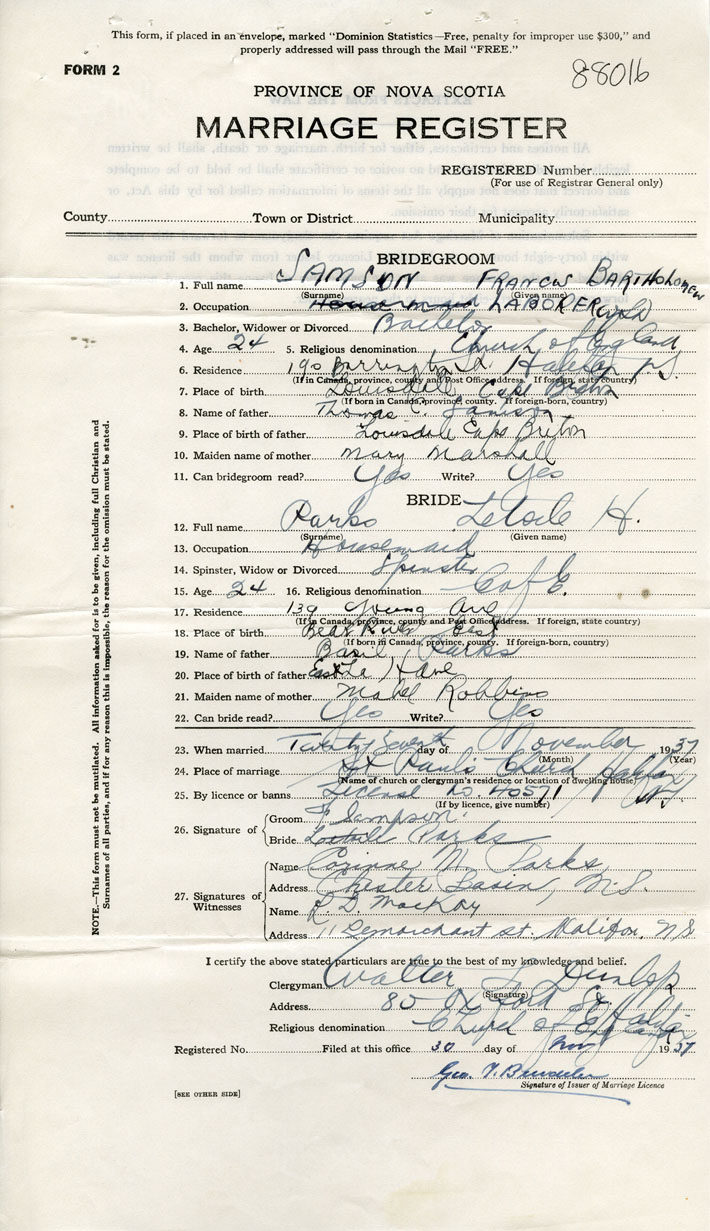 This form, if placed in an envelope, marked "Dominion Statistics—Free, penalty for improper use $300," and
properly addressed will pass through the Mail "FREE."
FORM 2
88016
PROVINCE OF NOVA SCOTIA
MARRIAGE REGISTER
REGISTERED Number
(For use of Registrar General only)
County Town or District Municipality
BRIDEGROOM
1. Full name SAMSON FRANCIS BARTHOLOMEW
(Surname) (Given name)
2. Occupation Housemaid LABORER
3. Bachelor, Widower or Divorced Bachelor
4. Age 24 5. Religious denomination Church of England
6. Residence 190 Barrington St. Halifax N.S.
(If in Canada, province, county and Post Office address. If foreign, state country)
7. Place of birth Louisdale Cape Breton
(If born in Canada, province, county. If foreign-born, country)
8. Name of father Thomas C. Samson
9. Place of birth of father Louisdale Cape Breton
10. Maiden name of mother Mary Marshall
11. Can bridegroom read? Yes Write? Yes
BRIDE
12. Full name Parks Letoile H.
(Surname) (Given name)
13. Occupation Housemaid
14. Spinster, Widow or Divorced Spinster
15. Age 24 16. Religious denomination C of E.
17. Residence 139 Young Ave
(If in Canada, province, county and Post Office address. If foreign, state country)
18. Place of birth Bear River East
(If born in Canada, province, county. If foreign-born, country)
19. Name of father Basil Parks
20. Place of birth of father
21. Maiden name of mother Mabel Robbins
22. Can bride read? Yes Write? Yes
23. When married Twenty Seventh day of November 1937
(Month) (Year)
24. Place of marriage St Paul's Church Halifax
(Name of church or clergyman's residence or location of dwelling house) N.S.
25. By licence or banns License No. 40571
(If by licence, give number)
26. Signature of Groom F Sampson.
Bride Parks
27. Signatures of Witnesses Name Corinne M. Parks
Address Chester Basin, N.S.
Name R. D. MacKay
Address 11 Lemarchant st. Halifax, N.S
I certify the above stated particulars are true to the best of my knowledge and belief.
Clergyman Walter Dunlop
(Signature)
Address 85 Oxford St Halifax
Religious denomination Church of England
Registered No. Filed at this office 30 day of Nov 1937
Geo.
Signature of Issuer of Marriage Licence
[SEE OTHER SIDE]
NOTE.—This form must not be mutilated. All information asked for is to be given, including full Christian and
Surnames of all parties, and if for any reason this is impossible, the reason for the omission must be stated.